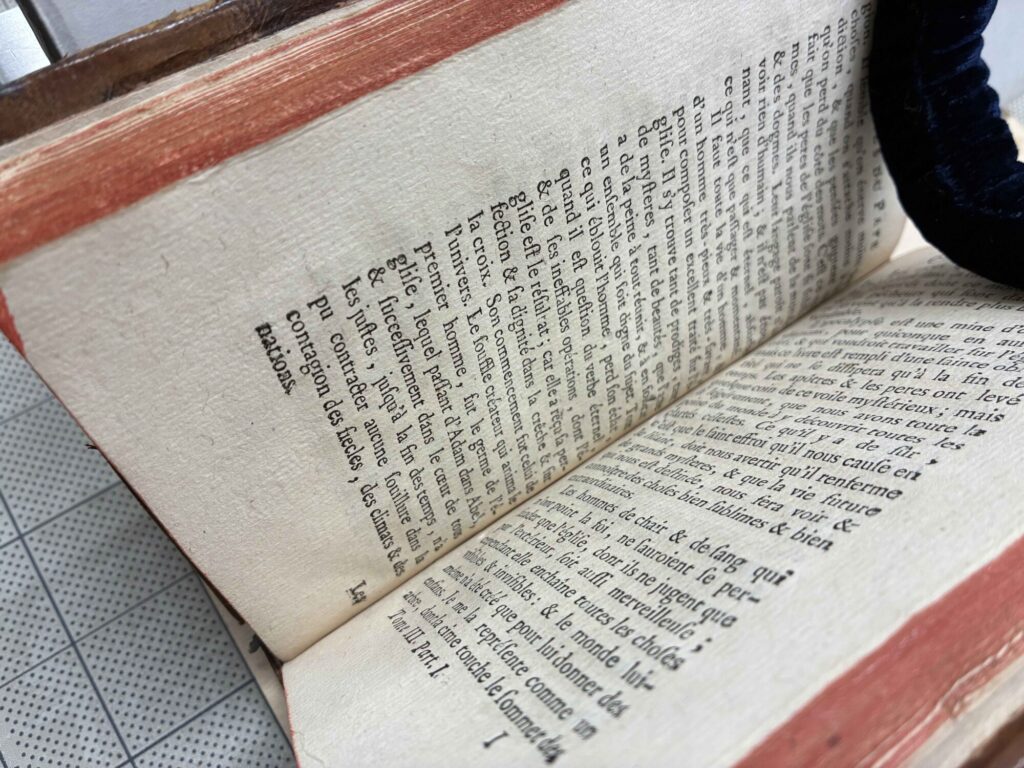 choſes,
diction, & que l'on
qu'on perd du côté des mots. C'eſt
fait que les peres de l'égliſe ſont
mes, quand ils nous parlent de
& des dogmes. Leur langage paroît
voir rien d'humain ; & il n'eſt pas
nant, que ce qui eſt éternel,
ce qui n'eſt que paſſager & momentané.
Il faut toute la vie d'un homme,
d'un homme très-pieux & très-ſavant
pour compoſer un excellent traité ſur
gliſe. Il s'y trouve tant de prodiges
de myſteres, tant de beautés, que l'on
a de la peine à tout réunir, & à en
un enſemble qui ſoit digne du ſujet. Tout
ce qui éblouit l'homme, perd ſon éclat
quand il eſt queſtion du verbe éternel
& de ſes ineffables opérations, dont l'é-
gliſe eſt le réſultat ; car elle a reçu ſa per-
fection & ſa dignité dans la crèche & ſur
la croix. Son commencement fut celui de
l'univers. Le ſouffle créateur qui anima le
premier homme, fut le germe de l'é-
gliſe, lequel paſſant d'Adam dans Abel,
& ſucceſſivement dans le cœur de tous
les juſtes, juſqu'à la fin des temps, n'a
pu contracter aucune ſouillure dans la
contagion des ſiecles, des climats & des
nations.
Les
la rendre plus
eſt une mine d'or
pour quiconque en
& qui voudroit travailler ſur l'égliſe.
livre eſt rempli d'une ſainte
qui ne ſe diſſipera qu'à la fin des
Les apôtres & les peres ont levé
quelque coin de ce voile myſtérieux ; mais
que nous avons toute la
monde y découvrir toutes les
céleſtes. Ce qu'il y a de ſûr,
c'eſt que le ſaint effroi qu'il nous cauſe en
liſant, doit nous avertir qu'il renferme
grands myſteres, & que la vie future
qui nous eſt deſtinée, nous fera voir &
connoître des choſes bien ſublimes & bien
extraordinaires.
Les hommes de chair & de ſang qui
n'ont point la foi, ne ſauroient ſe per-
ſuader que l'égliſe, dont ils ne jugent que
par l'extérieur, ſoit auſſi merveilleuſe ;
cependant elle enchaîne toutes les choſes
viſibles & inviſibles ; & le monde lui-
même n'a été créé que pour lui donner des
enfans. Je me la repréſente comme un
arbre, dont la cime touche le ſommet des
Tom. III. Part. I. I